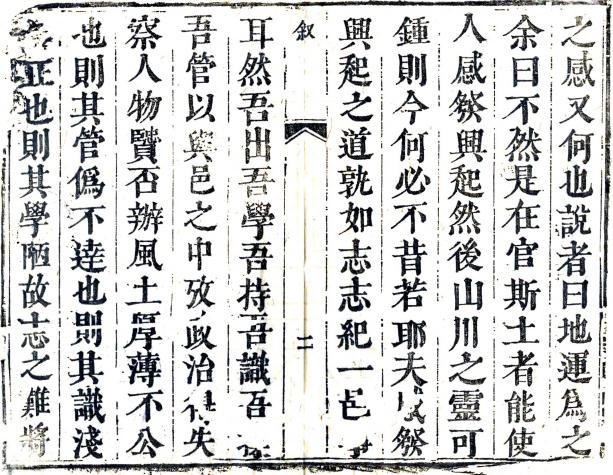 之感又何也說者曰地運為之
余曰不然是在官斯土者能使
人感發興起然後山川之靈可
鍾則今何必不昔若耶夫感發
興起之道孰如志志紀一邑
叙 二
耳然吾出吾學吾持吾識吾
吾管以與邑之中攷政治得失
察人物賢否辦風土厚薄不公
也則其管僞不逹也則其識淺
正也則其學陋故志之難將